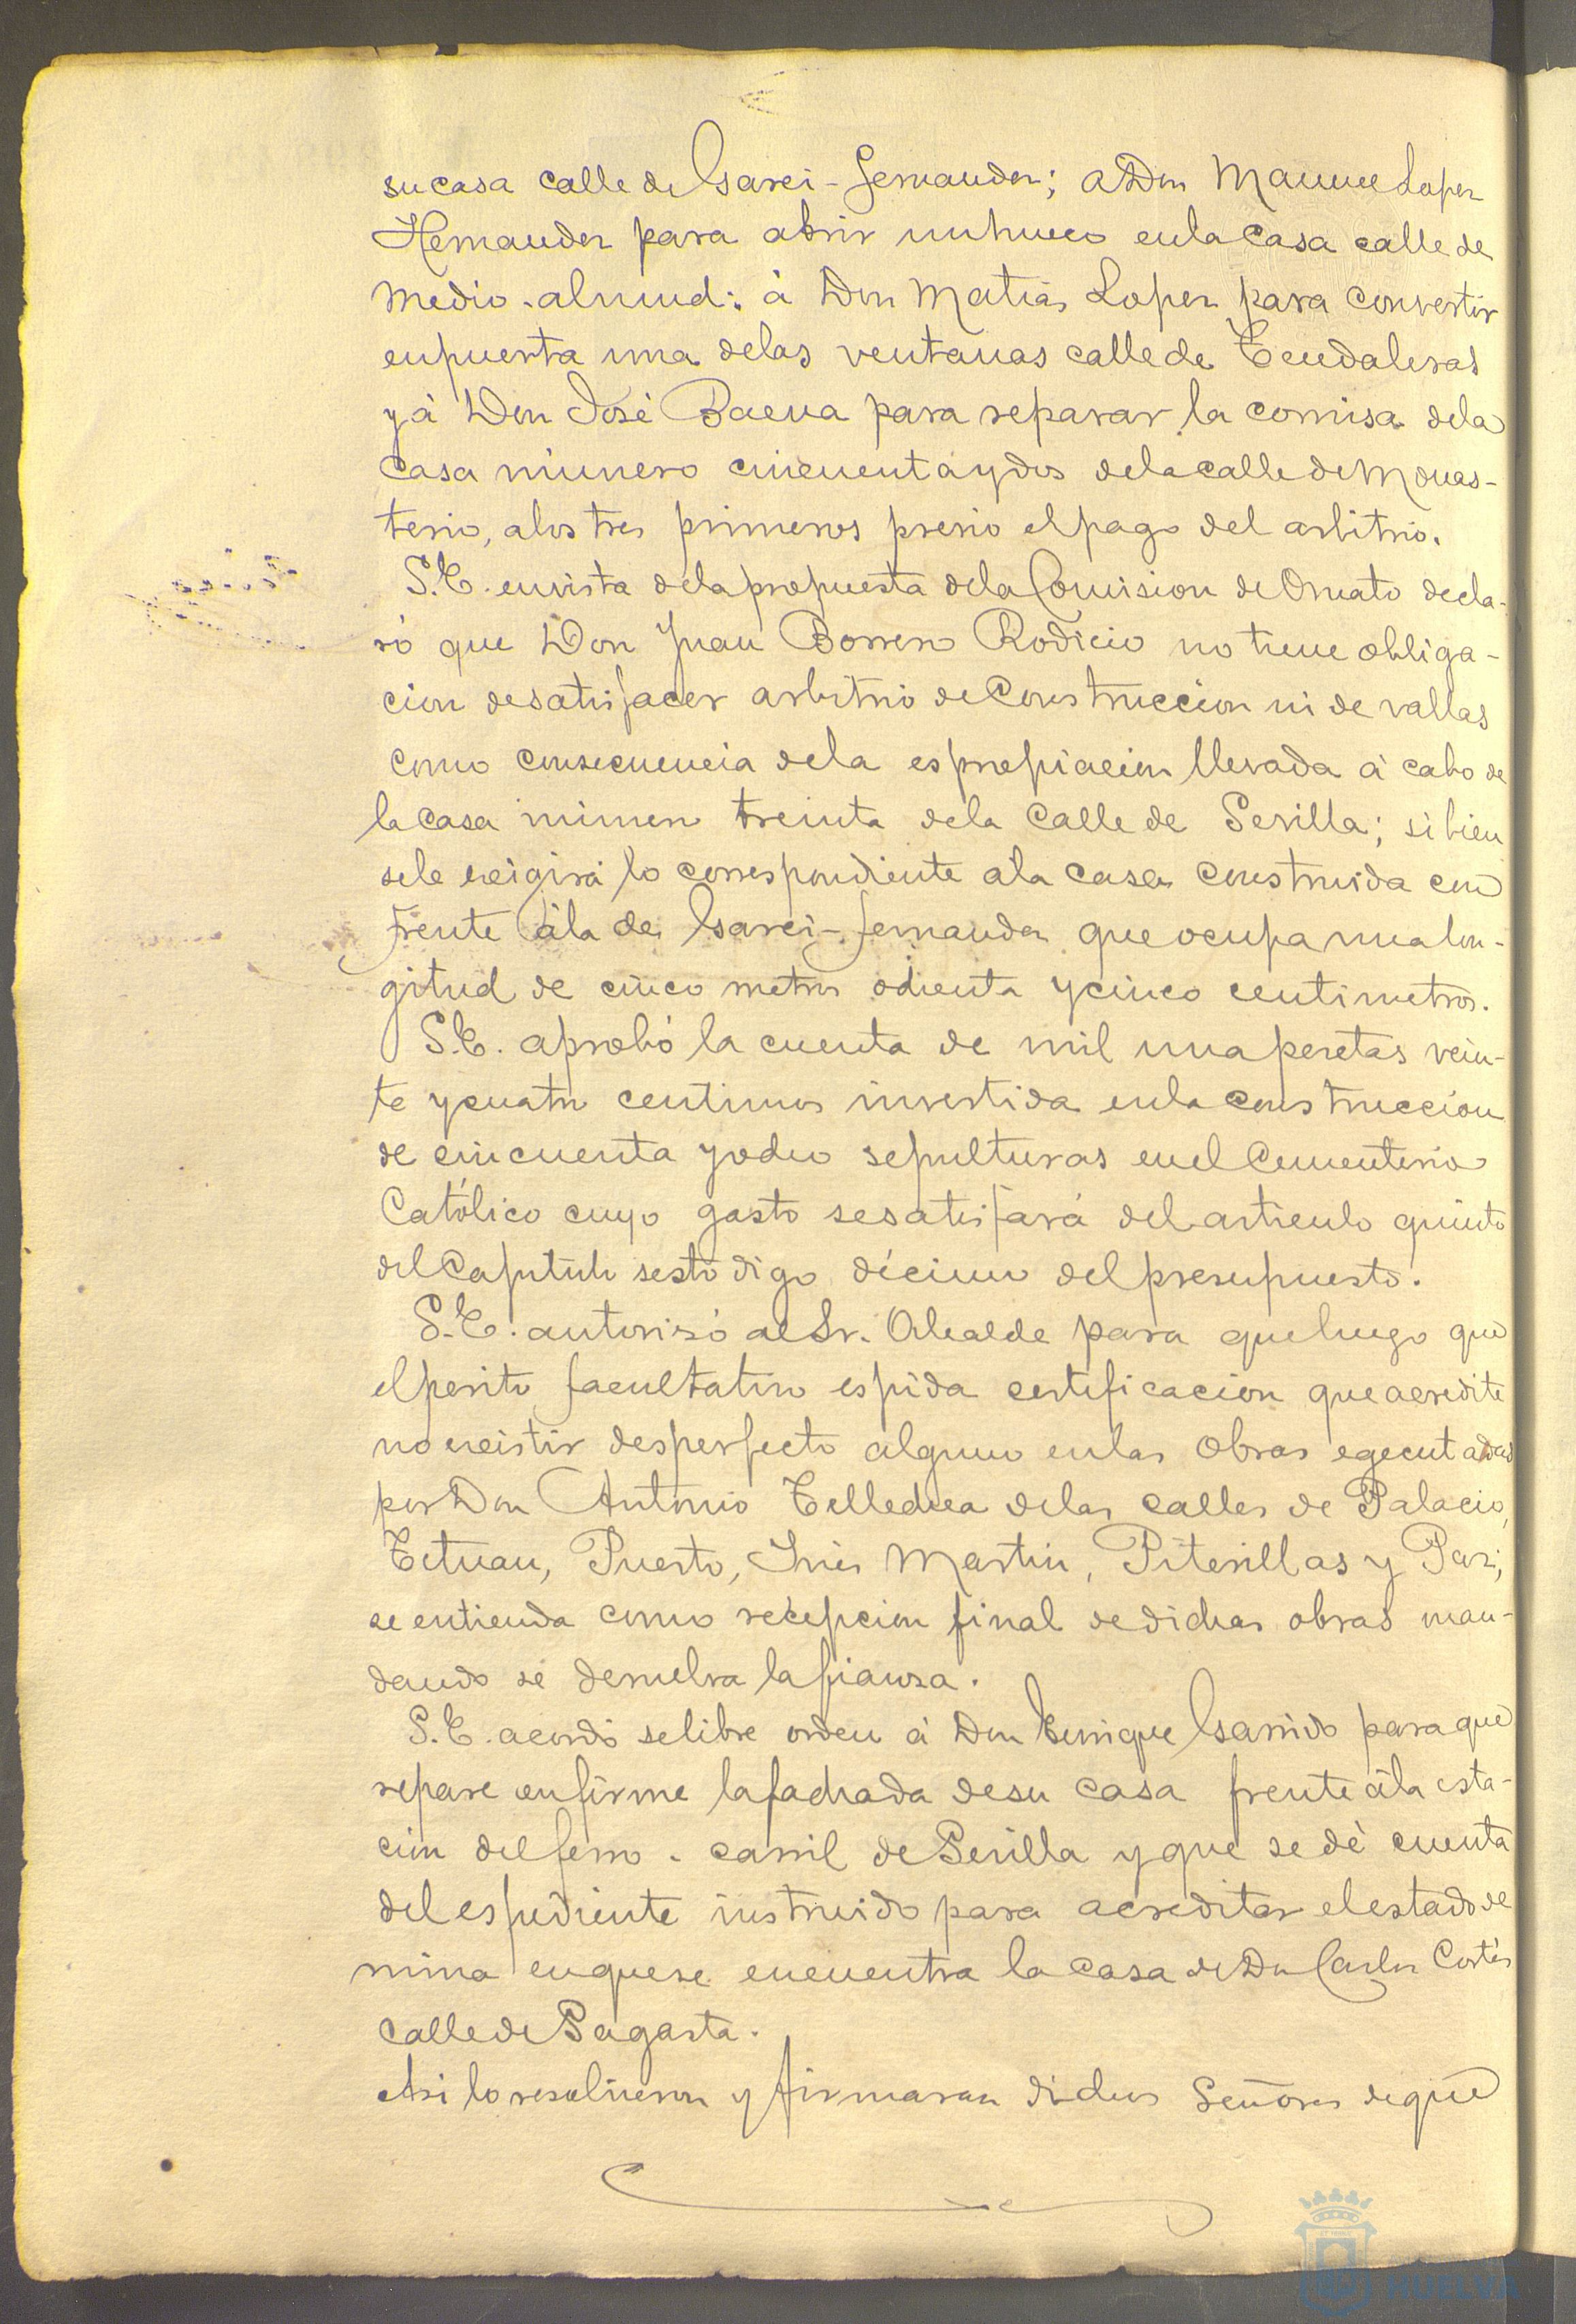 su casa calle de Garci-Fernandez; a Don Manuel Lopez
Hernandez para abrir un hueco en la casa calle de
Medio-almud: à Don Matias Lopez para convertir
en puerta una de las ventanas calle de Tendaleras
y à Don José Baena para reparar la cornisa de la
casa número cincuenta y dos de la calle de Monas-
terio, a los tres primeros previo el pago del arbitrio.
S.E. en vista de la propuesta de la Comision de Ornato decla-
ró que Don Juan Borrero Rodicio no tiene obliga-
cion de satisfacer arbitrio de construccion ni de vallas
como consecuencia de la espropiacion llevada à cabo de
la casa número treinta de la calle de Sevilla; si bien
se le exigirá lo correspondiente a la casa construida con
frente à la de Garci-Fernandez que ocupa una lon-
gitud de cinco metros ochenta y cinco centimetros.
S.E. aprobó la cuenta de mil una pesetas vein-
te y cuatro centimos invertida en la construccion
de cincuenta y ocho sepulturas en el Cementerio
Católico cuyo gasto se satisfará del articulo quinto
del Capitulo sesto digo décimo del presupuesto.
S.E. autorizó al Sr. Alcalde para que luego que
el perito facultativo espida certificacion que acredite
no existir desperfecto alguno en las obras egecutadas
por Don Antonio Tellechea de las calles de Palacio,
Tetuan, Puerto, Inés Martin, Piterillas y Paz;
se entienda como recepcion final de dichas obras man-
dando se devuelva la fianza.
S.E. acordó se libre orden à Don Enrique Garrido para que
repare en firme la fachada de su casa frente à la esta-
cion del ferro-carril de Sevilla y que se dé cuenta
del espediente instruido para acreditar el estado de
ruina en que se encuentra la casa de Don Carlos Cortés
calle de Sagasta.
Asi lo resolvieron y firmaran dichos Señores de que
HUELVA